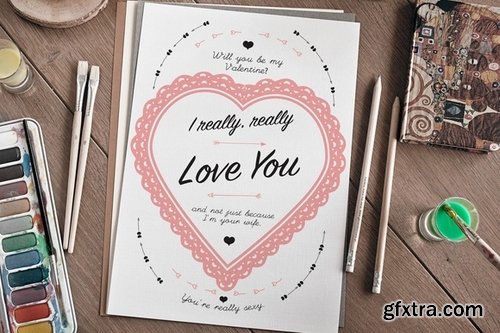 Will you be my
Valentine?
I really, really
Love You
and not just because
I'm your wife.
You're really sexy
gfxtra.com